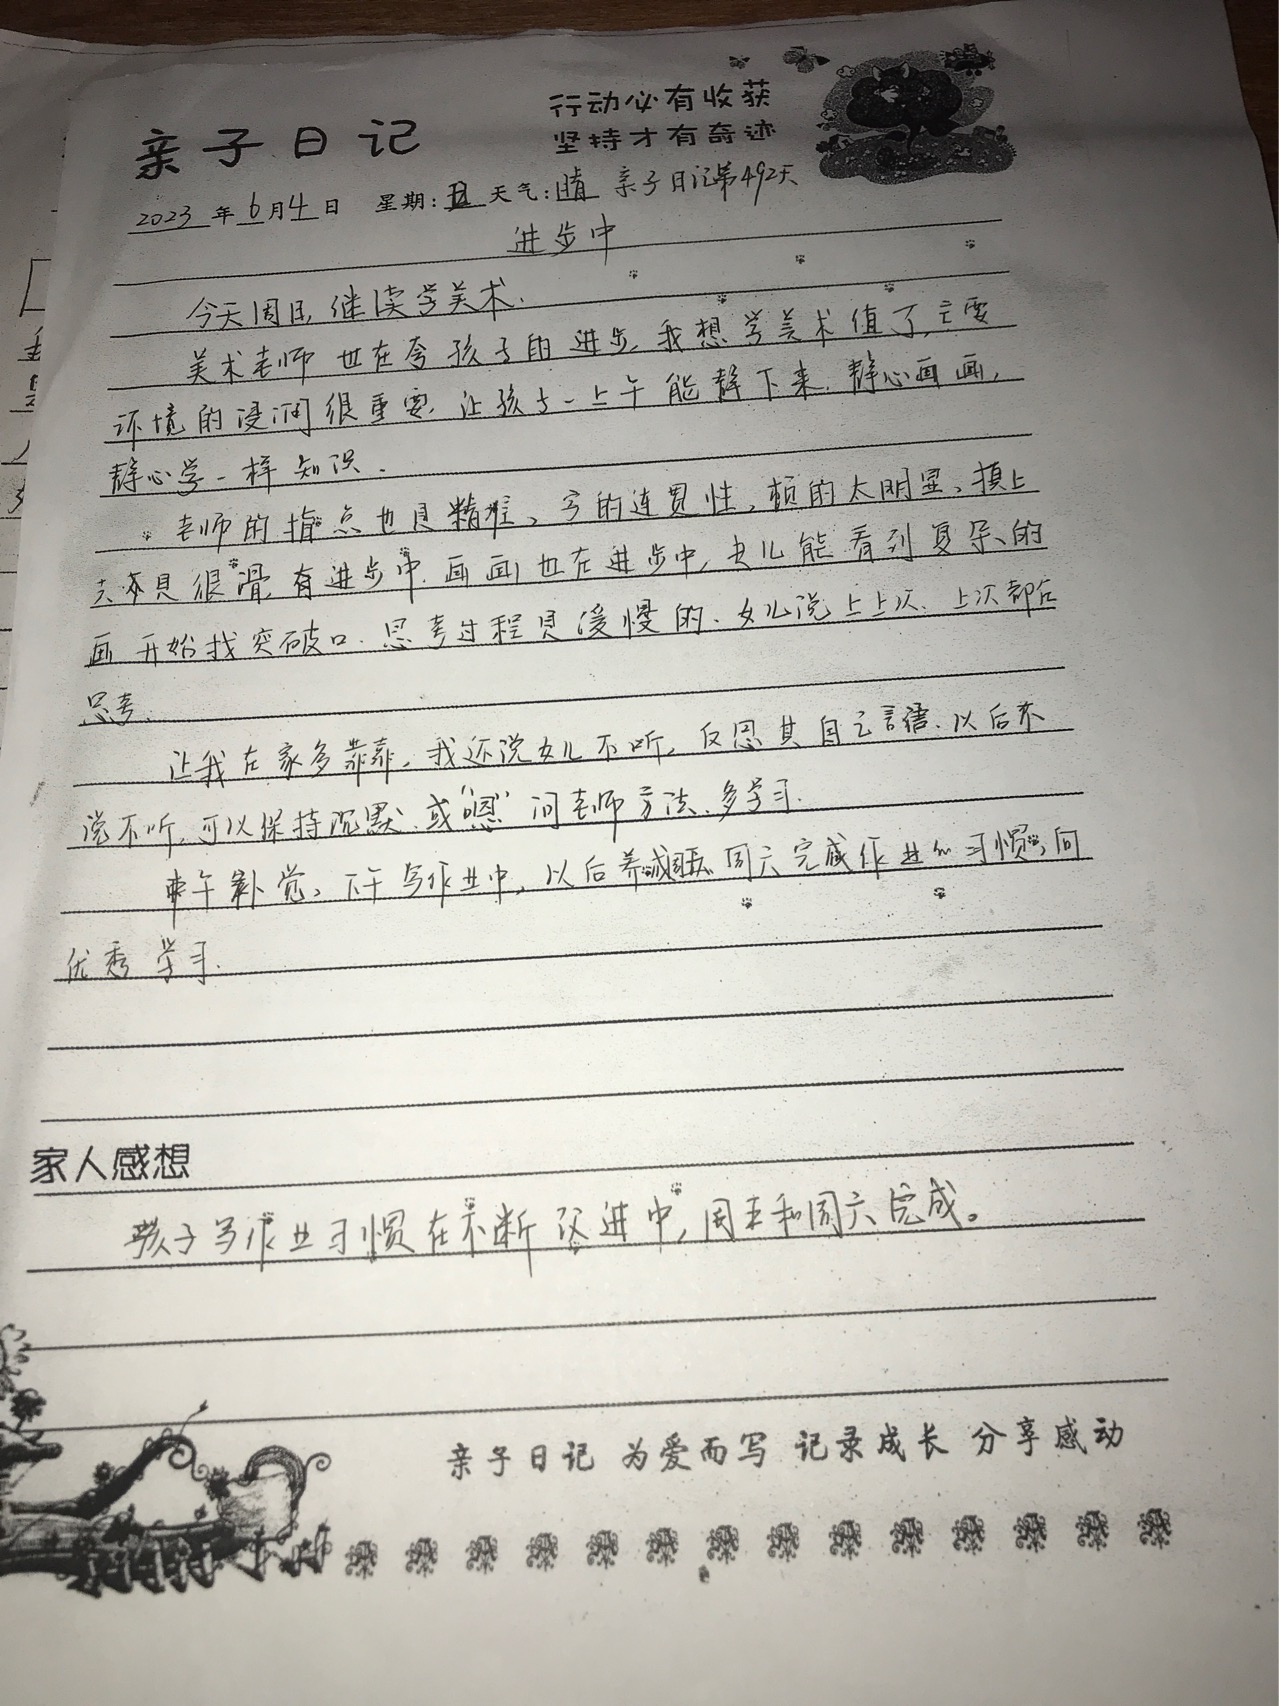 行动必有收获
坚持才有奇迹
亲子日记
2023年6月4日 星期:日 天气:晴 亲子日记第492天
进步中
今天周日,继续学美术.
美术老师也在夸孩子的进步,我想学美术值了,主要
环境的浸润很重要.让孩子一上午能静下来.静心画画,
静心学一样知识.
老师的指点也是精准、写的连贯性,顿的太明显、摸上
去不是很滑,有进步中.画画也在进步中,女儿能看到复杂的
画开始找突破口.思考过程是缓慢的.女儿说上上次、上次都在
思考.
让我在家多靠靠,我还说女儿不听,反思其自己言语.以后不
说不听,可以保持沉默.或"嗯"问老师方法.多学习.
中午补觉.下午写作业中,以后养成周五周六完成作业的习惯,向
优秀学习.
家人感想
孩子写作业习惯在不断改进中,周五和周六完成。
亲子日记 为爱而写 记录成长 分享感动